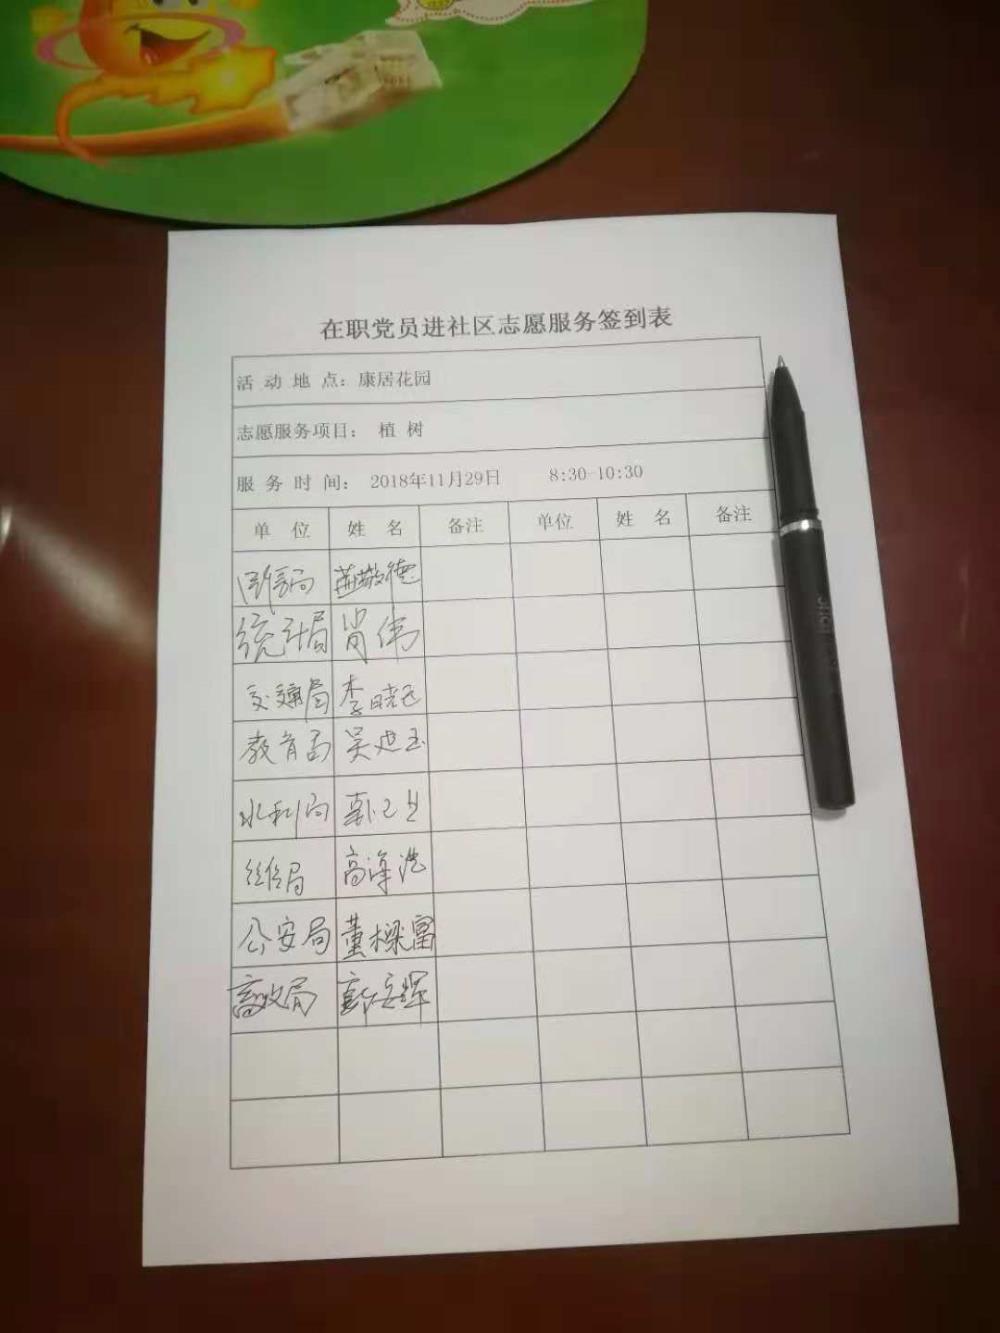 在职党员进社区志愿服务签到表
活 动 地 点：康居花园
志愿服务项目： 植 树
服 务 时 间： 2018年11月29日 8:30-10:30
单 位 姓 名 备注 单位 姓 名 备注
统计局 肖伟
交通局 李晓飞
教育局
水利局
高泽浩
公安局 董樑富